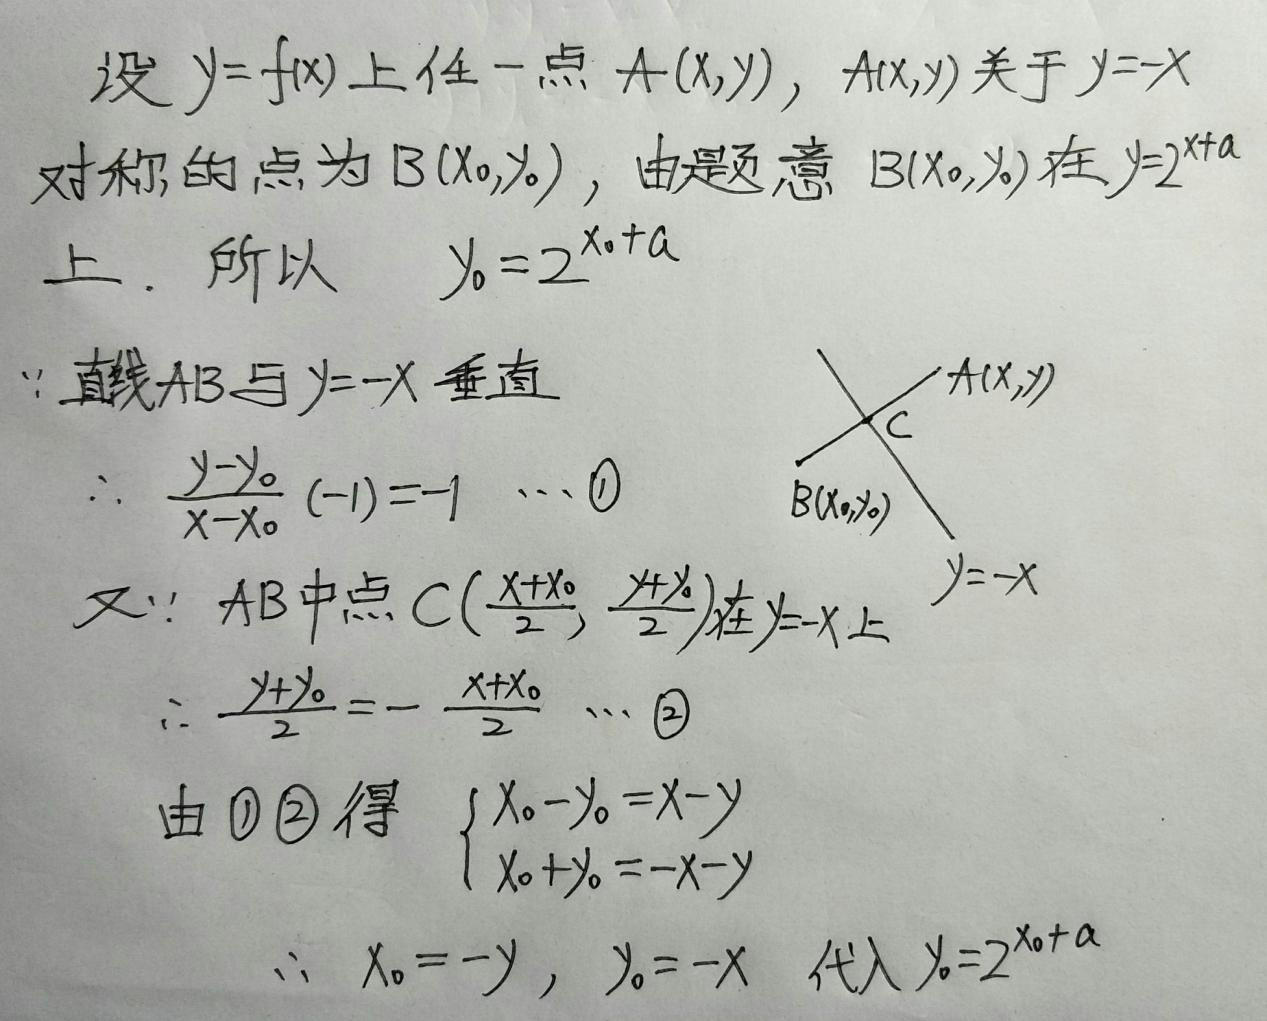 设 y=f(x)上任一点 A(x,y)，A(x,y)关于 y=-x
对称的点为B(x₀,y₀)，由题意 B(x₀,y₀)在 y=2^{x+a}
上．所以 y₀=2^{x₀+a}
∵直线AB与y=-x 垂直
∴ \frac{y-y₀}{x-x₀}(-1)=-1 …①
又∵ AB中点C(\frac{x+x₀}{2}, \frac{y+y₀}{2})在y=-x上
∴ \frac{y+y₀}{2}=-\frac{x+x₀}{2} …②
由①②得 { x₀-y₀=x-y
x₀+y₀=-x-y
∴ x₀=-y，y₀=-x 代入 y₀=2^{x₀+a}
A(x,y)
C
B(x₀,y₀)
y=-x